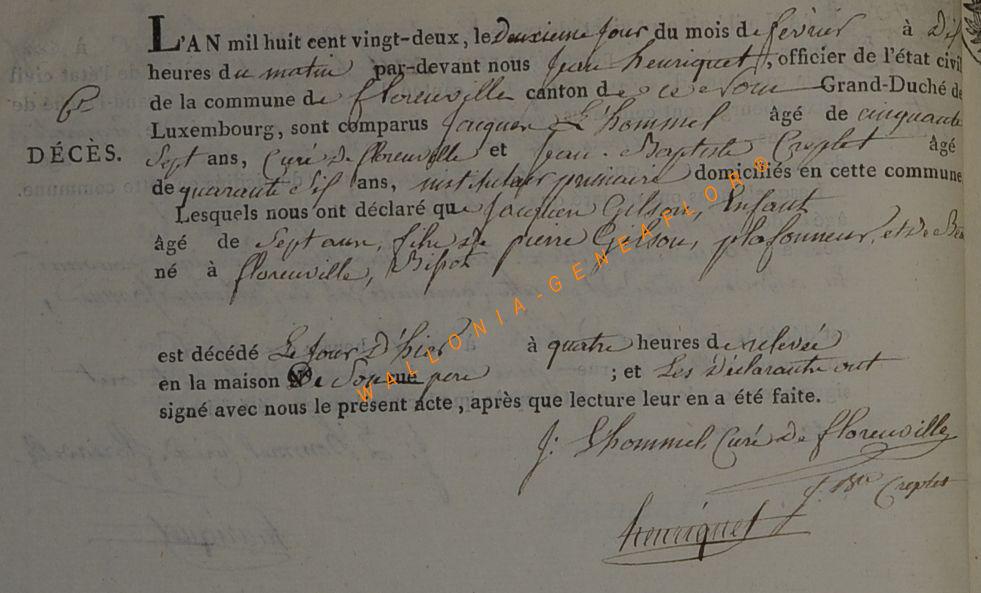 L'AN mil huit cent vingt-deux, le Deuxieme Jour du mois de février à Dix
heures du matin par-devant nous Jean henriquet, officier de l'état civil
de la commune de florenville canton de Grand-Duché de
Luxembourg, sont comparus Jacques L'hommel âgé de cinquante
DÉCÈS.
Sept ans, Curé de florenville et Jean-Baptiste Creplet âgé
de quarante Six ans, instituteur primaire domiciliés en cette commune
Lesquels nous ont déclaré que Jacques Gilson, Enfant
âgé de Sept ans, fils de pierre Gilson, plafonneur, et de
né à florenville,
est décédé Le Jour D'hier à quatre heures de relevée
en la maison De Son pere ; et Les Déclarants ont
signé avec nous le présent acte, après que lecture leur en a été faite.
J: Lhommel, Curé De florenville
J. Bte Creplet
henriquet
WALLONIA-GENEAFLOR®